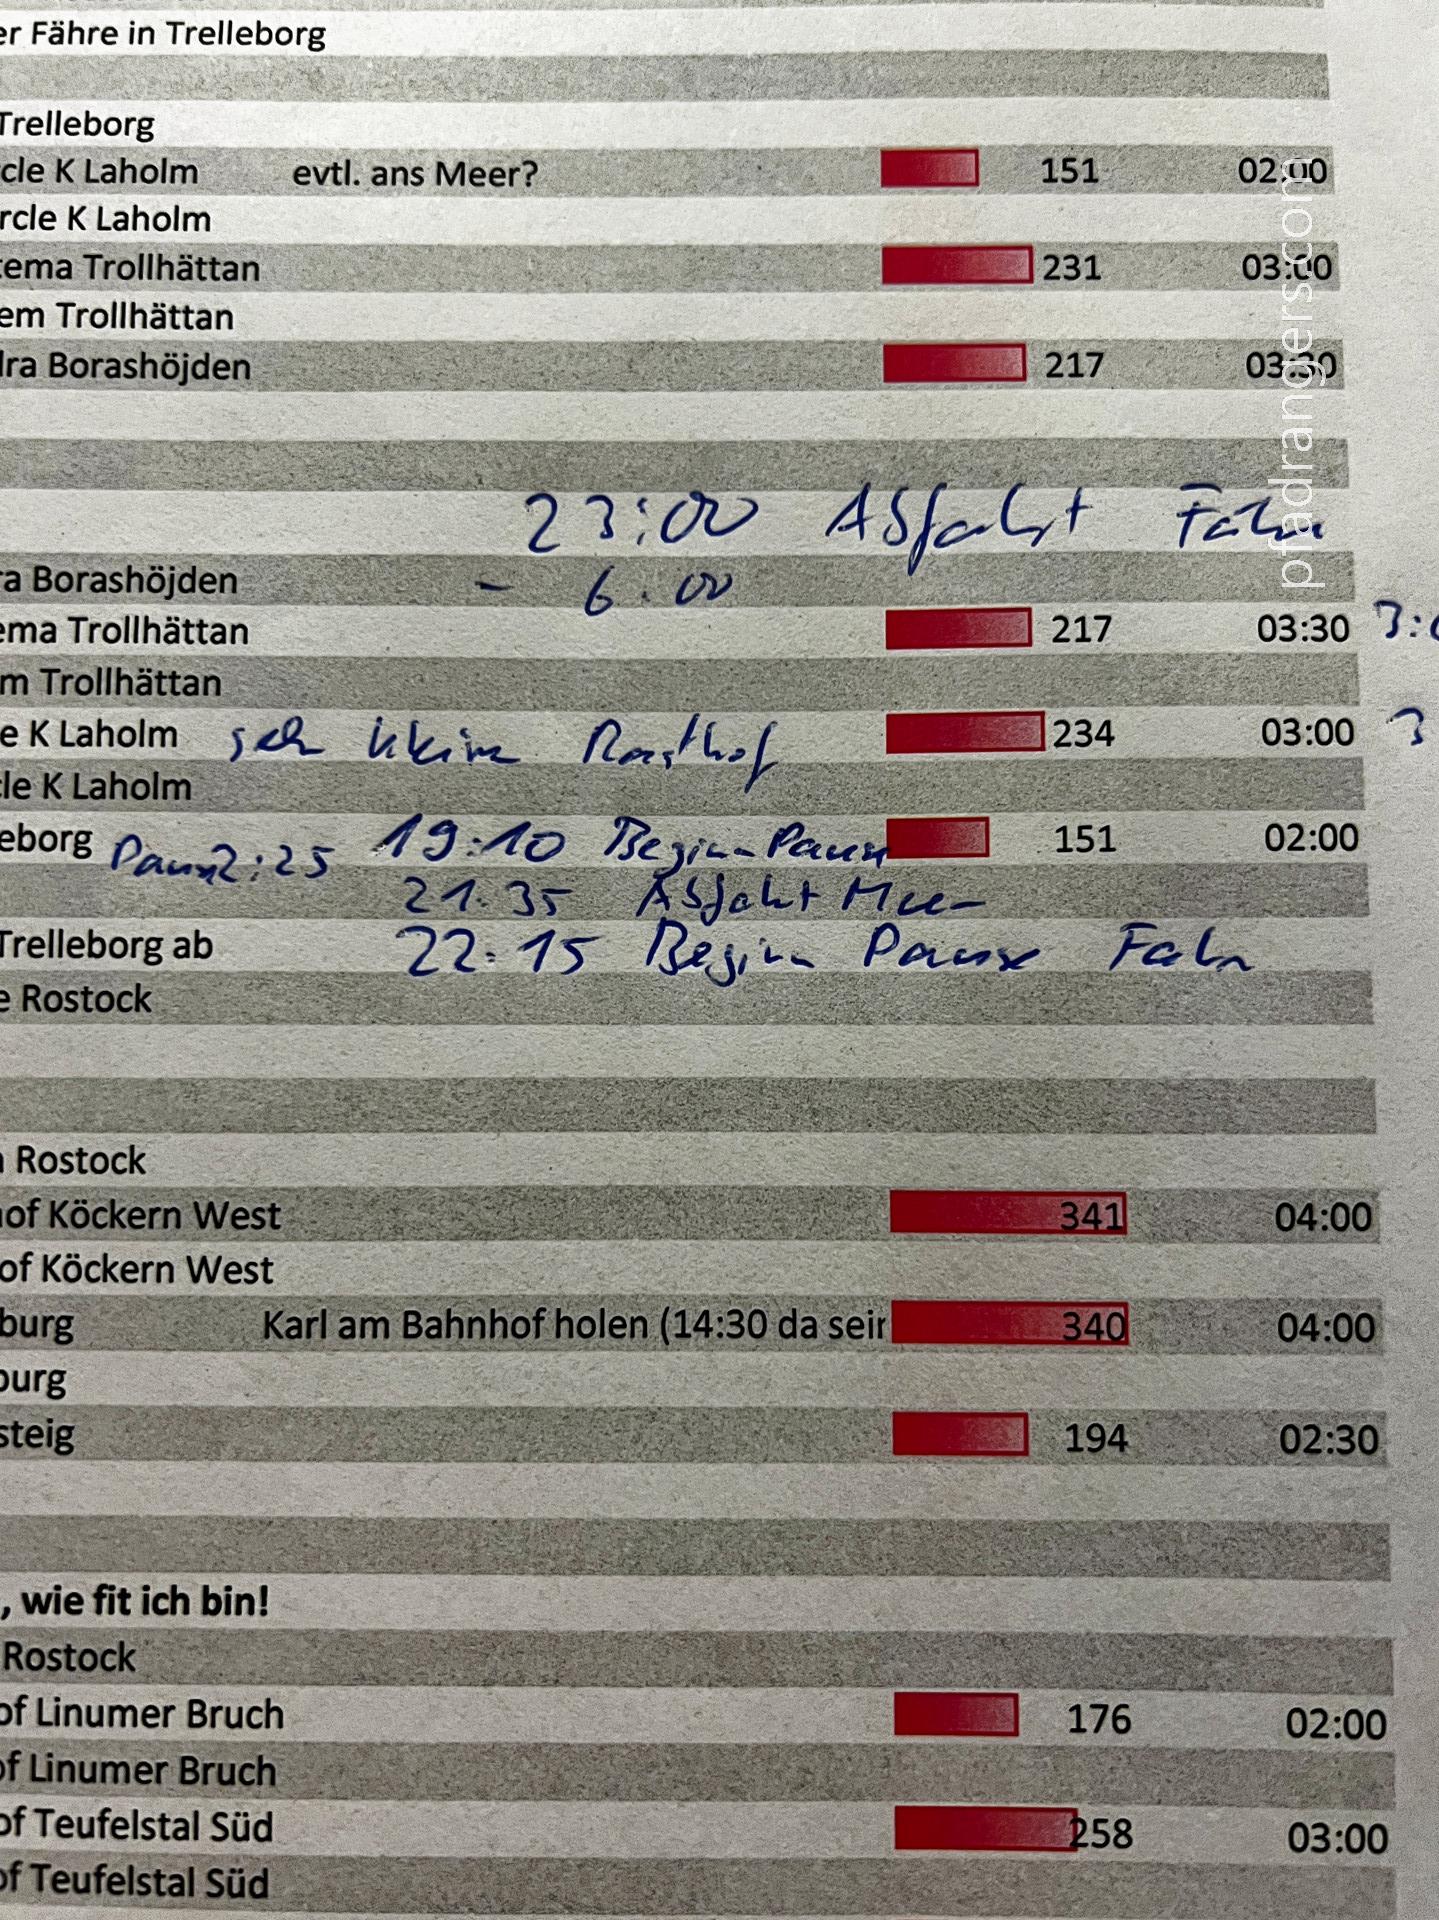 er Fähre in Trelleborg
Trelleborg
cle K Laholm evtl. ans Meer? 151 02:00
rcle K Laholm
tema Trollhättan 231 03:00
em Trollhättan
dra Borashöjden 217 03:30
23:00 Abfahrt Fähre
ra Borashöjden - 6:00
ema Trollhättan 217 03:30 3:0
m Trollhättan
e K Laholm sehr kleine Rasthof 234 03:00 3
cle K Laholm
leborg Pause 2:25 19:10 Beginn Pause 151 02:00
21:35 Abfahrt Meer
Trelleborg ab 22:15 Beginn Pause Fähre
e Rostock
n Rostock
hof Köckern West 341 04:00
of Köckern West
burg Karl am Bahnhof holen (14:30 da sein 340 04:00
burg
steig 194 02:30
, wie fit ich bin!
Rostock
of Linumer Bruch 176 02:00
of Linumer Bruch
of Teufelstal Süd 258 03:00
of Teufelstal Süd
pfadrangers.com